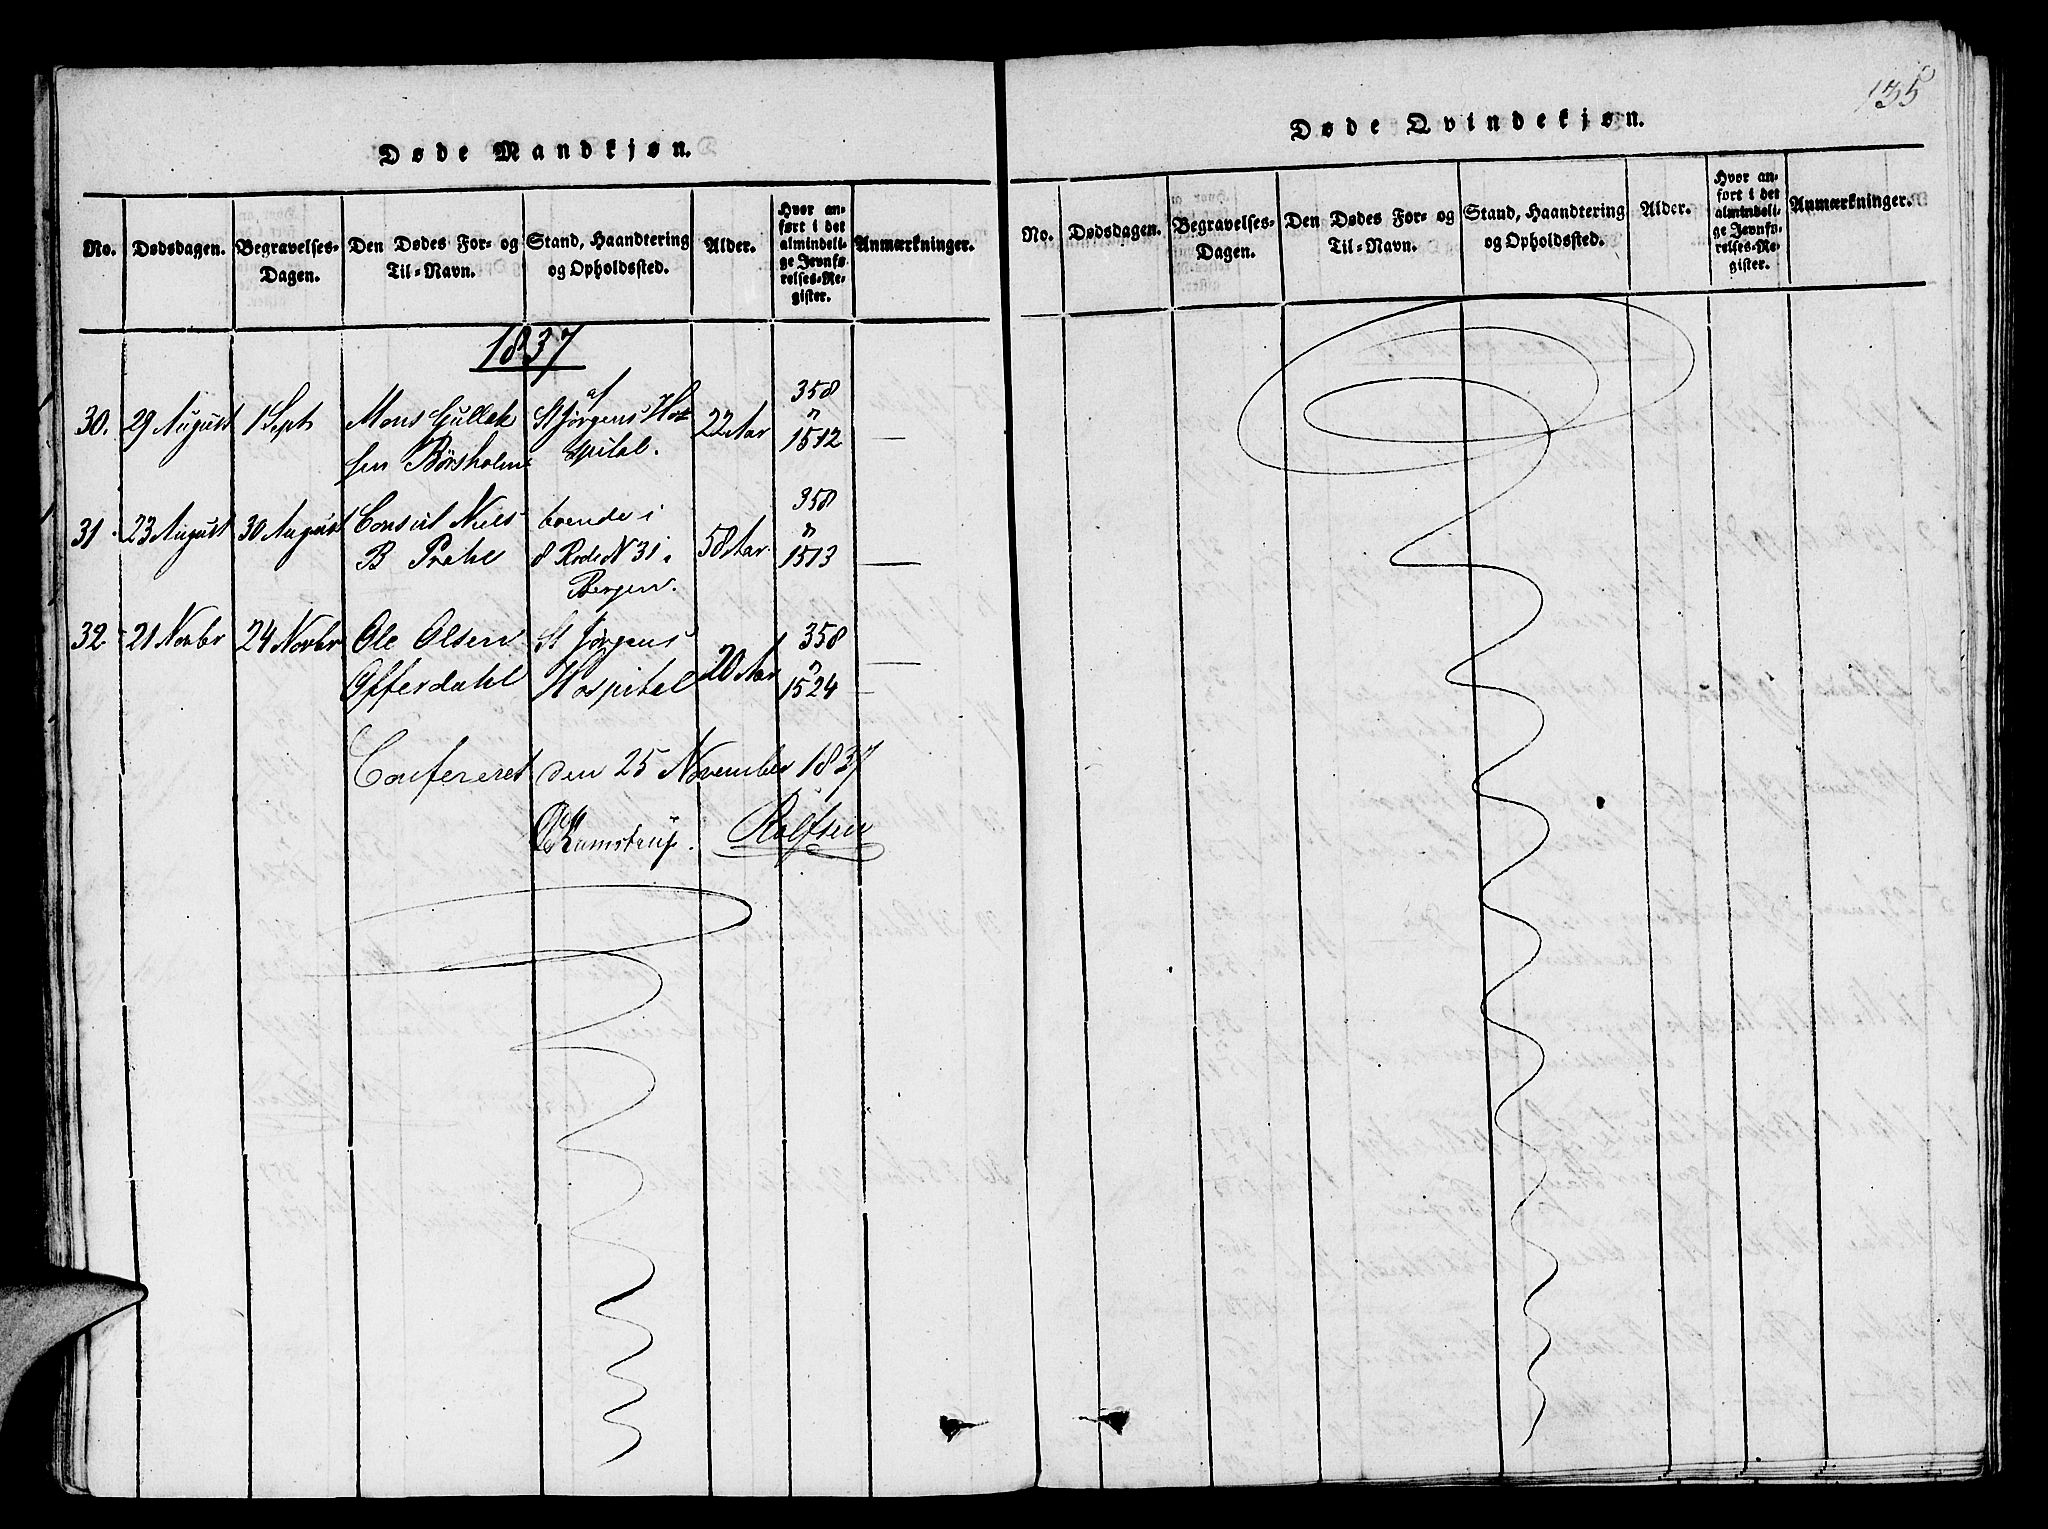 Døde Mandkjøn.
No.
Dødsdagen.
Begravelses-
Dagen.
Den Dødes For- og
Til-Navn.
Stand, Haandtering
og Opholdssted.
Alder.
Hvor an-
ført i det
almindeli-
ge Jevnfø-
relses-Re-
gister.
Anmærkninger.
1837
30. 29 August 1 Sept Mons Gullak St Jørgens Ho- 22 Aar 358
af
sen Børsholm spital. " 1512
31. 23 August 30 August Consul Niels boende i 58 Aar. 358
B Prahl 8 Rode N 31 i " 1513
Bergen.
32 21 Novbr 24 Novbr Ole Olsen St Jørgens 20 Aar 358
Offerdahl Hospital " 1524
Confereret den 25 November 1837
Kamstrup. Rolfsen
135
Døde Qvindekjøn.
No.
Dødsdagen.
Begravelses-
Dagen.
Den Dødes For- og
Til-Navn.
Stand, Haandtering
og Opholdssted.
Alder.
Hvor an-
ført i det
almindeli-
ge Jevnfø-
relses-Re-
gister.
Anmærkninger.